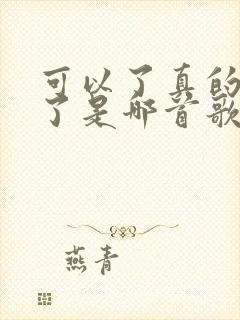 可以了真的
了是哪首歌
燕青